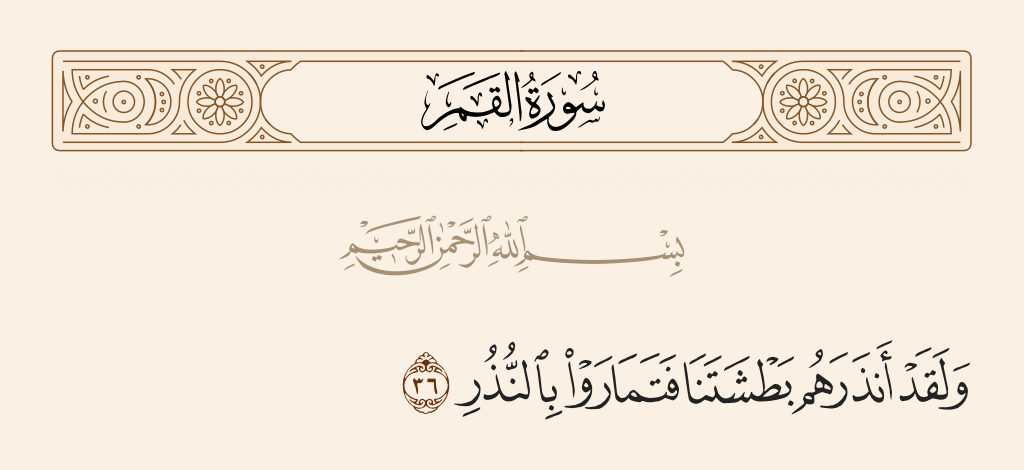 سُورَةُ القَمَرِ
بِسْمِ ٱللَّهِ ٱلرَّحْمَٰنِ ٱلرَّحِيمِ
وَلَقَدْ أَنذَرَهُم بَطْشَتَنَا فَتَمَارَوْا۟ بِٱلنُّذُرِ ٣٦